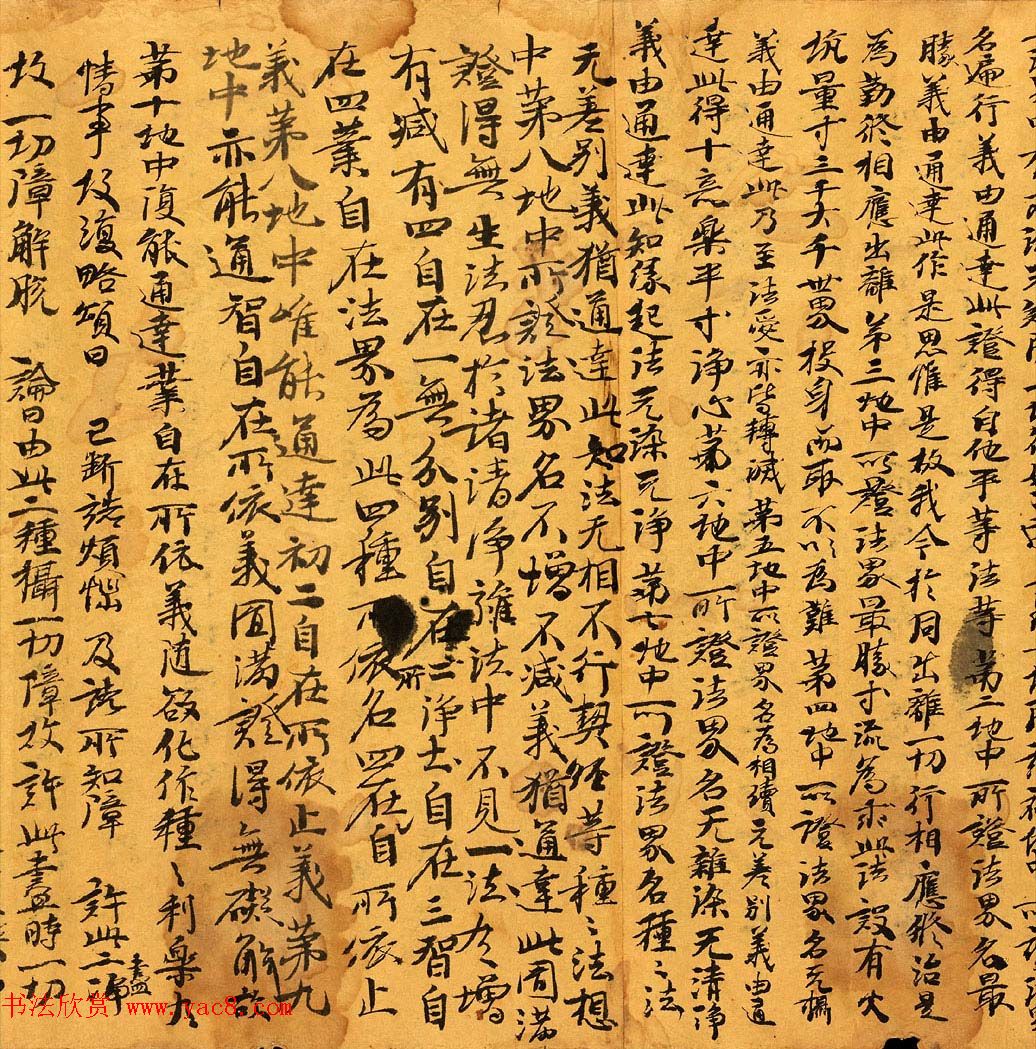 名遍行義由通達此證得自他平等法等 第二地中所證法界名最
勝義由通達此作是思惟是故我今於同出離一切行相應修治是
為勤修相應出離 第三地中所證法界最勝等流為求此法設有火
坑量等三千大千世界投身而取不以為難 第四地中所證法界名无攝
義由通達此乃至法愛亦皆轉滅 第五地中所證界名為相續无差別義由通
達此得十意樂平等淨心 第六地中所證法界名无雜染无清淨
義由通達此知緣起法无染无淨 第七地中所證法界名種〻法
无差別義猶通達此知法无相不行契經等種〻法想
中第八地中所證法界名不增不減義猶通達此圓滿
證得無生法忍於諸諸淨雜法中不見一法有增
有減有四自在一無分別自在二淨土自在三智自
在四業自在法界為此四種所依名四在自所依止
義第八地中唯能通達初二自在所依止義第九
地中亦能通智自在所依義圓滿證得無礙解故
第十地中復能通達業自在所依義隨欲化作種〻利樂有
情事故復略頌曰 已斷諸煩惱及諸所知障 許此二障盡
故一切障解脫 論曰由此二種攝一切障故許此盡時一切
书法欣赏 www.yac8.com